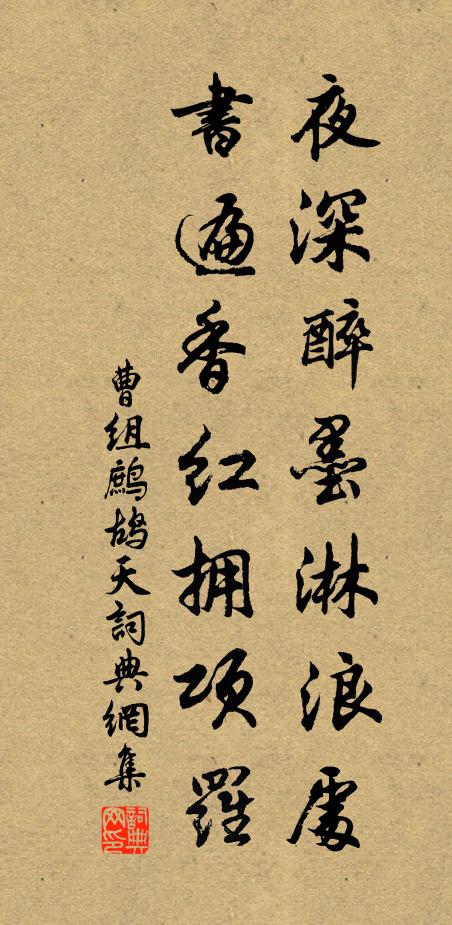 夜深醉墨淋浪處
書遍香紅拥项羅
曹组鷓鸪天詞典網集
詞典网印